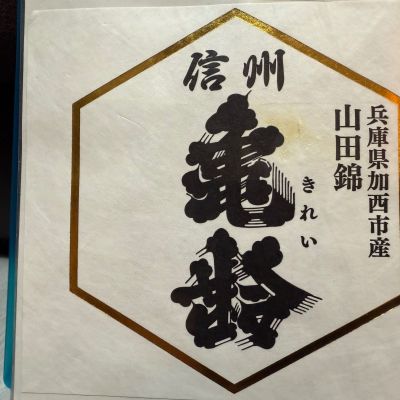 信州
亀齢
きれい
兵庫県加西市産
山田錦